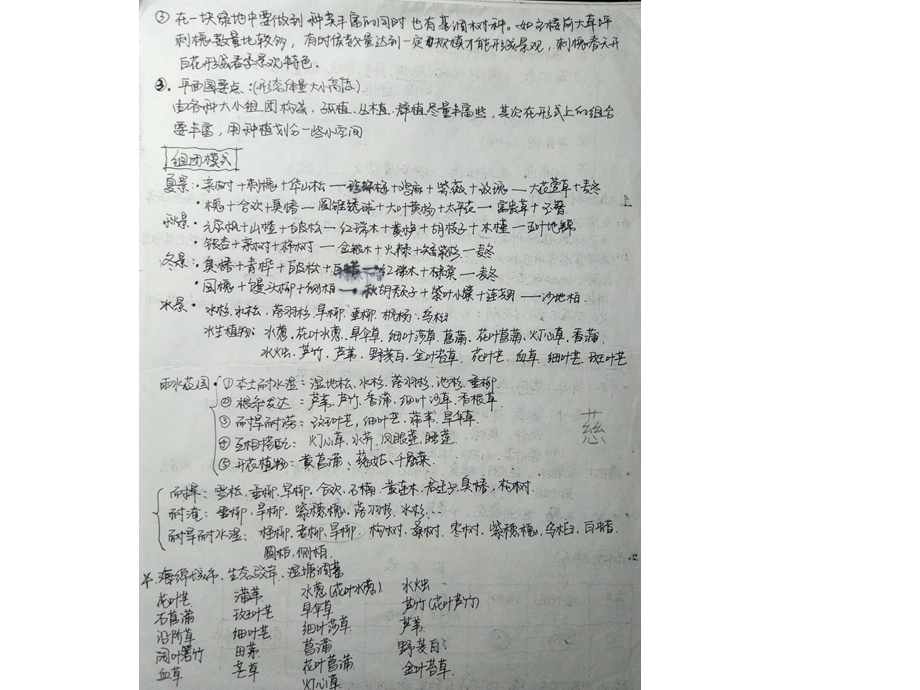 ③ 在一块绿地中要做到 种类丰富的同时 也有基调树种. 如主楼前大草坪
刺槐数量比较多, 有时候数量达到一定规模才能形成景观, 刺槐春天开
白花形成春季景观特色.
③. 平面图要点:(形态体量大小高落)
由各种大小组团构成, 孤植. 丛植. 群植尽量丰富些, 其次在形式上的组合
要丰富, 用种植划分一些小空间
组团模式
夏景: · 栾树+刺槐+华山松 — +鸡麻+紫薇+玫瑰 — 大花萱草+麦冬
· 槐+合欢+臭椿 — 圆锥绣球+大叶黄杨+太平花 — 富贵草+玉簪
秋景: · 元宝枫+山楂+白皮松 — 红瑞木+黄栌+胡枝子+木槿 — 五叶地锦
· 银杏+栾树+柿树 — 金银木+火棘+ — 麦冬
冬景: · 臭椿+青桦+白皮松+ — 红瑞木+棣棠 — 麦冬
· 国槐+馒头柳+侧柏 — 秋胡颓子+紫叶小檗+连翘 — 沙地柏
水景 · 水杉, 水松, 落羽杉, 旱柳. 垂柳. 枫杨. 乌桕
水生植物: 水葱, 花叶水葱, 旱伞草, 细叶莎草. 菖蒲, 花叶菖蒲, 灯心草, 香蒲
水烛, 芦竹, 芦苇, 野茭白, 金叶苔草, 花叶芒, 血草, 细叶芒, 斑叶芒
雨水花园 · ① 本土耐水湿: 湿地松, 水杉, 落羽杉, 池杉, 垂柳.
② 根系发达: 芦苇, 芦竹. 香蒲, 细叶沙草, 香根草
③ 耐旱耐涝: 斑叶芒, 细叶芒. 蒲苇. 旱伞草.
④ 互相搭配: 灯心草, 水芹, 凤眼莲, 睡莲.
⑤ 开花植物: 黄菖蒲、慈姑、千屈菜.
慈
耐旱: 雪松, 垂柳, 旱柳, 合欢, 石楠, 黄连木, 臭椿, 构树.
耐淹: 垂柳, 旱柳, 紫穗槐, 落羽杉, 水杉...
耐旱耐水湿: 柽柳, 旱柳. 构树, 桑树, 枣树, 紫穗槐, 乌桕, 白蜡
圆柏, 侧柏.
海绵城市, 生态驳岸, 湿塘洞蓄
花叶芒 蒲苇 水葱 (花叶水葱) 水烛
石菖蒲 斑叶芒 旱伞草 芦竹 (花叶芦竹)
沿阶草 细叶芒 细叶莎草 芦苇
阔叶箬竹 田茅 菖蒲 野茭白
血草 芒草 花叶菖蒲 金叶苔草
灯心草